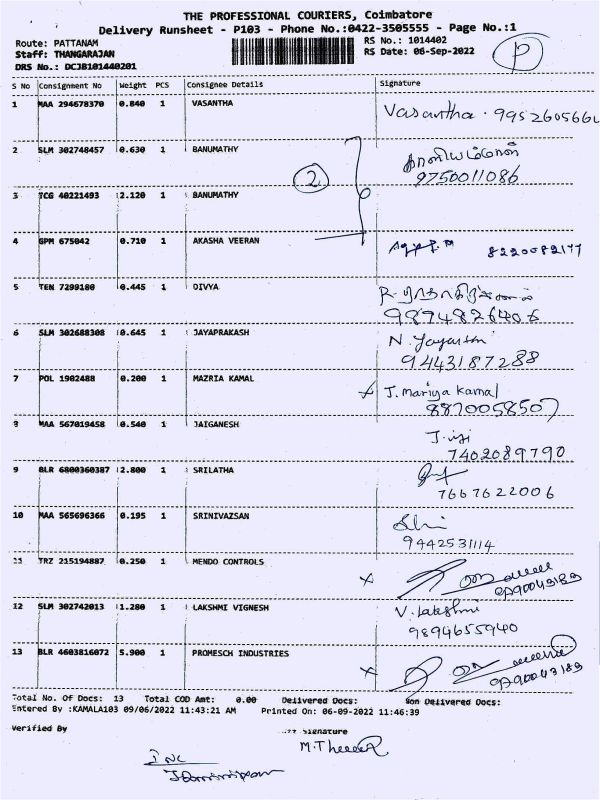 THE PROFESSIONAL COURIERS, Coimbatore
Delivery Runsheet - P103 - Phone No.:0422-3505555 - Page No.:1
Route: PATTANAM
RS No.: 1014402
Staff: THANGARAJAN
RS Date: 06-Sep-2022
DRS No.: DCJB101440201
P
S No Consignment No Weight PCS Consignee Details Signature
1 MAA 294678370 0.840 1 VASANTHA Vasantha.
2 SLM 302748457 0.630 1 BANUMATHY
9750011086
2
3 TCG 40221493 2.120 1 BANUMATHY
4 GPM 675042 0.710 1 AKASHA VEERAN 8220082177
5 TEN 7299180 0.445 1 DIVYA
9874826406
6 SLM 302688308 0.645 1 JAYAPRAKASH
9443187288
7 POL 1902488 0.200 1 MAZRIA KAMAL J. mariya kamal
8870058507
8 MAA 567019458 0.540 1 JAIGANESH
7402089790
9 BLR 6800360387 2.800 1 SRILATHA
7667622006
10 MAA 565696366 0.195 1 SRINIVAZSAN
9442531114
11 TRZ 215194887 0.250 1 MENDO CONTROLS
12 SLM 302742013 1.280 1 LAKSHMI VIGNESH V. Lakshmi
9894655940
13 BLR 4603816072 5.900 1 PROMESCH INDUSTRIES
Total No. Of Docs: 13 Total COD Amt: 0.00 Delivered Docs: Non Delivered Docs:
Entered By :KAMALA103 09/06/2022 11:43:21 AM Printed On: 06-09-2022 11:46:39
Verified By Signature